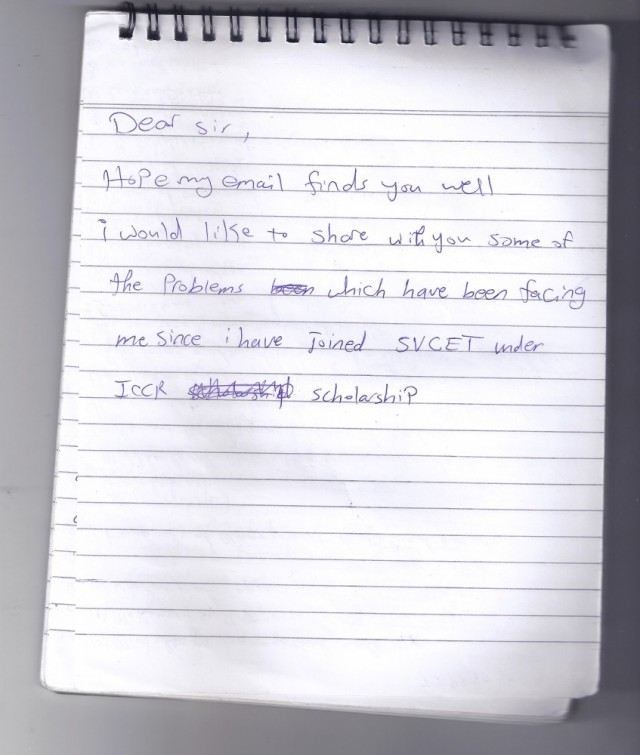 Dear sir,
Hope my email finds you well
i would like to share with you some of
the Problems been which have been facing
me since i have joined SVCET under
ICCR scholarship scholarship